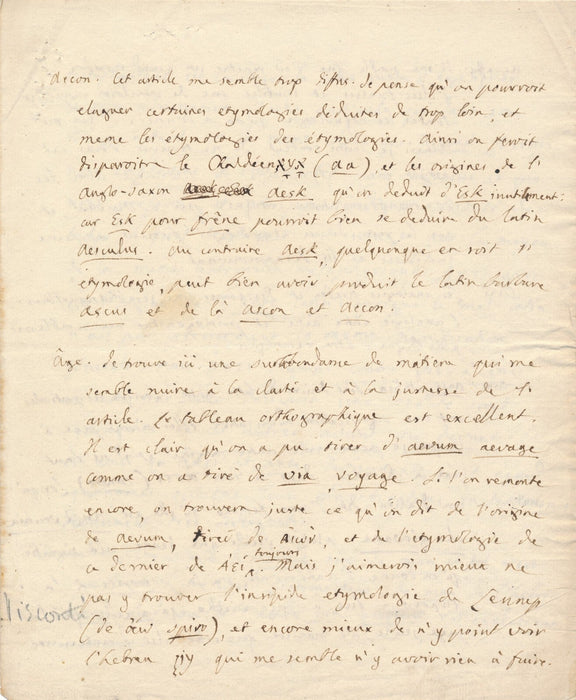 accon. Cet article me semble trop diffus. Je pense qu'on pourroit
elaguer certaines etymologies déduites de trop loin, et
meme les étymologies des étymologies. Ainsi on feroit
disparoitre le Chaldéen (aa), et les origines de l'
anglo-saxon aesk qu'on déduit d'Esk inutilement:
car Esk pour frêne pourroit bien se deduire du latin
aesculus. Au contraire aesk, quelquonque en soit l'
étymologie, peut bien avoir produit le latin barbare
ascus et de là ascon et accon.
âge. Je trouve ici une surabondance de matiere qui me
semble nuire à la clarté et à la justesse de l'
article. Le tableau orthographique est excellent.
Il est clair qu'on a pu tirer d'aevum aevage
comme on a tiré de via, voyage. Si l'on remonte
encore, on trouvera juste ce qu'on dit de l'origine
de aevum, tirée de Αἰών, et de l'etymologie de
ce dernier de ΑΕΙ toujours. Mais j'aimerois mieux ne
pas y trouver l'insipide etymologie de Lennep
(de ἄω spiro), et encore mieux de n'y point voir
Visconti
l'hebreu qui me semble n'y avoir rien à faire.